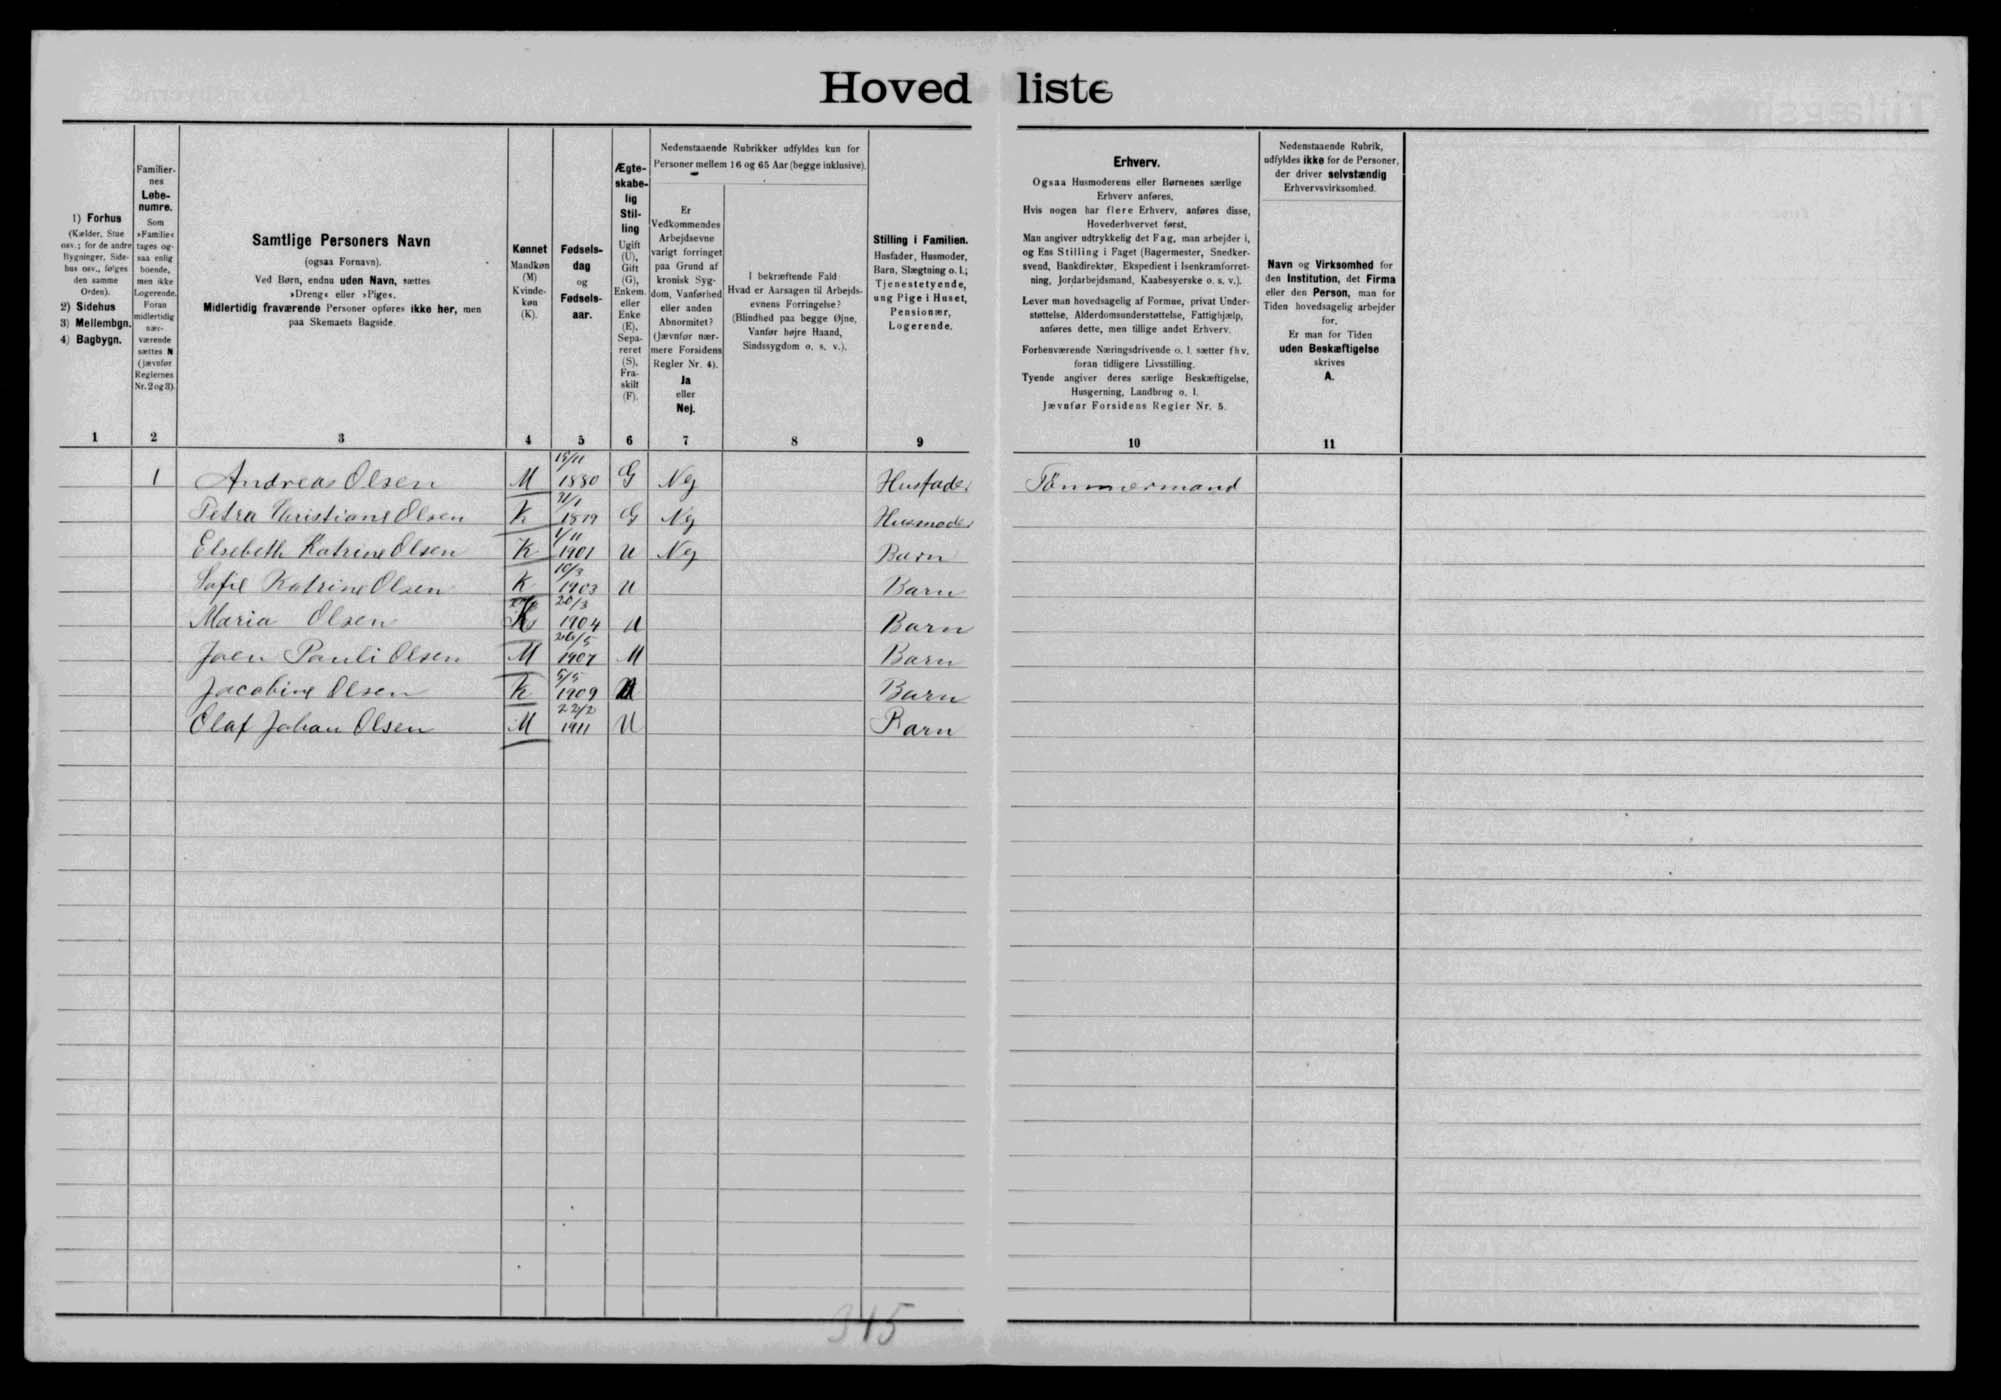 Hovedliste
1) Forhus
(Kælder, Stue
osv.; for de andre
Bygninger, Side-
hus osv., følges
den samme
Orden).
2) Sidehus
3) Mellembgn.
4) Bagbygn.
Familier-
nes
Løbe-
numre.
Som
»Familie«
tages og-
saa enlig
boende,
men ikke
Logerende.
Foran
midlertidig
nær-
værende
sættes N
(jævnfør
Reglernes
Nr. 2 og 3).
Samtlige Personers Navn
(ogsaa Fornavn).
Ved Børn, endnu uden Navn, sættes
»Dreng« eller »Pige«.
Midlertidig fraværende Personer opføres ikke her, men
paa Skemaets Bagside.
Kønnet
Mandkøn
(M)
Kvinde-
køn
(K).
Fødsels-
dag
og
Fødsels-
aar.
Ægte-
skabe-
lig
Stil-
ling
Ugift
(U),
Gift
(G),
Enkem.
eller
Enke
(E),
Sepa-
reret
(S),
Fra-
skilt
(F).
Nedenstaaende Rubrikker udfyldes kun for
Personer mellem 16 og 65 Aar (begge inklusive).
Er
Vedkommendes
Arbejdsevne
varigt forringet
paa Grund af
kronisk Syg-
dom, Vanførhed
eller anden
Abnormitet?
(Jævnfør nær-
mere Forsidens
Regler Nr. 4).
Ja
eller
Nej.
I bekræftende Fald:
Hvad er Aarsagen til Arbejds-
evnens Forringelse?
(Blindhed paa begge Øjne,
Vanfør højre Haand,
Sindssygdom o. s. v.).
Stilling i Familien.
Husfader, Husmoder,
Barn, Slægtning o. l.;
Tjenestetyende,
ung Pige i Huset,
Pensionær,
Logerende.
Erhverv.
Ogsaa Husmoderens eller Børnenes særlige
Erhverv anføres.
Hvis nogen har flere Erhverv, anføres disse,
Hovederhvervet først.
Man angiver udtrykkelig det Fag, man arbejder i,
og Ens Stilling i Faget (Bagermester, Snedker-
svend, Bankdirektør, Ekspedient i Isenkramforret-
ning, Jordarbejdsmand, Kaabesyerske o. s. v.).
Lever man hovedsagelig af Formue, privat Under-
støttelse, Alderdomsunderstøttelse, Fattighjælp,
anføres dette, men tillige andet Erhverv.
Forhenværende Næringsdrivende o. l. sætter fhv.
foran tidligere Livsstilling.
Tyende angiver deres særlige Beskæftigelse,
Husgerning, Landbrug o. l.
Jævnfør Forsidens Regler Nr. 5.
Nedenstaaende Rubrik,
udfyldes ikke for de Personer,
der driver selvstændig
Erhvervsvirksomhed.
Navn og Virksomhed for
den Institution, det Firma
eller den Person, man for
Tiden hovedsagelig arbejder
for.
Er man for Tiden
uden Beskæftigelse
skrives
A.
1 2 3 4 5 6 7 8 9 10 11
1 Andreas Olsen M 1880 G Nej Husfader Tömmermand
Petra Christiane Olsen K G Nej Husmoder
Elsebeth Katrine Olsen K 1/11 1901 U Nej Barn
Sofie Katrine Olsen K 10/3 1903 U Barn
Maria Olsen K 20/3 1904 U Barn
Joen Pauli Olsen M 26/5 1907 M Barn
Jacobine Olsen K 5/5 1909 U Barn
Olaf Johan Olsen M 22/2 1911 U Barn
345